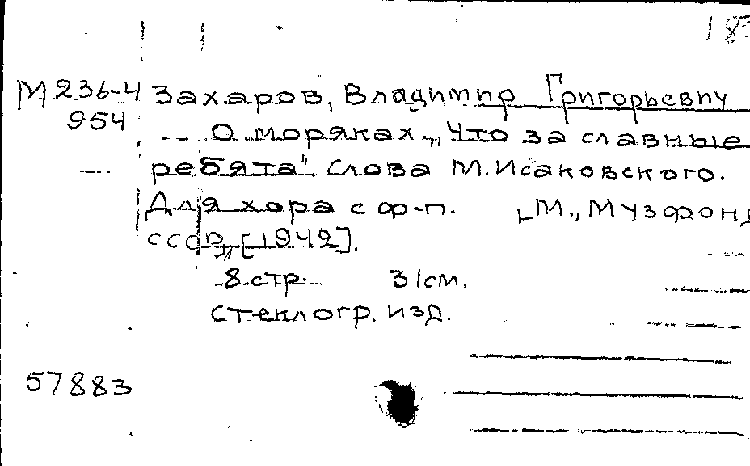 183
М236-4 Захаров, Владимир Григорьевич
954 ... О моряках „Что за славные
ребята" Слова М.Исаковского.
Для хора с ф-п. [М., Музфонд
СССР, [1942].
8 стр. 31см.
стеклогр. изд.
57883